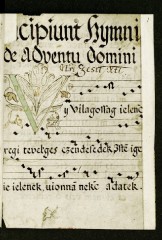 Incipiunt Hymni
de Adventu Domini
Uy Vilagossag ielenek
regi tevelges czendesedek, Iste ige
ie ielenek, uionnā nekē adatek.